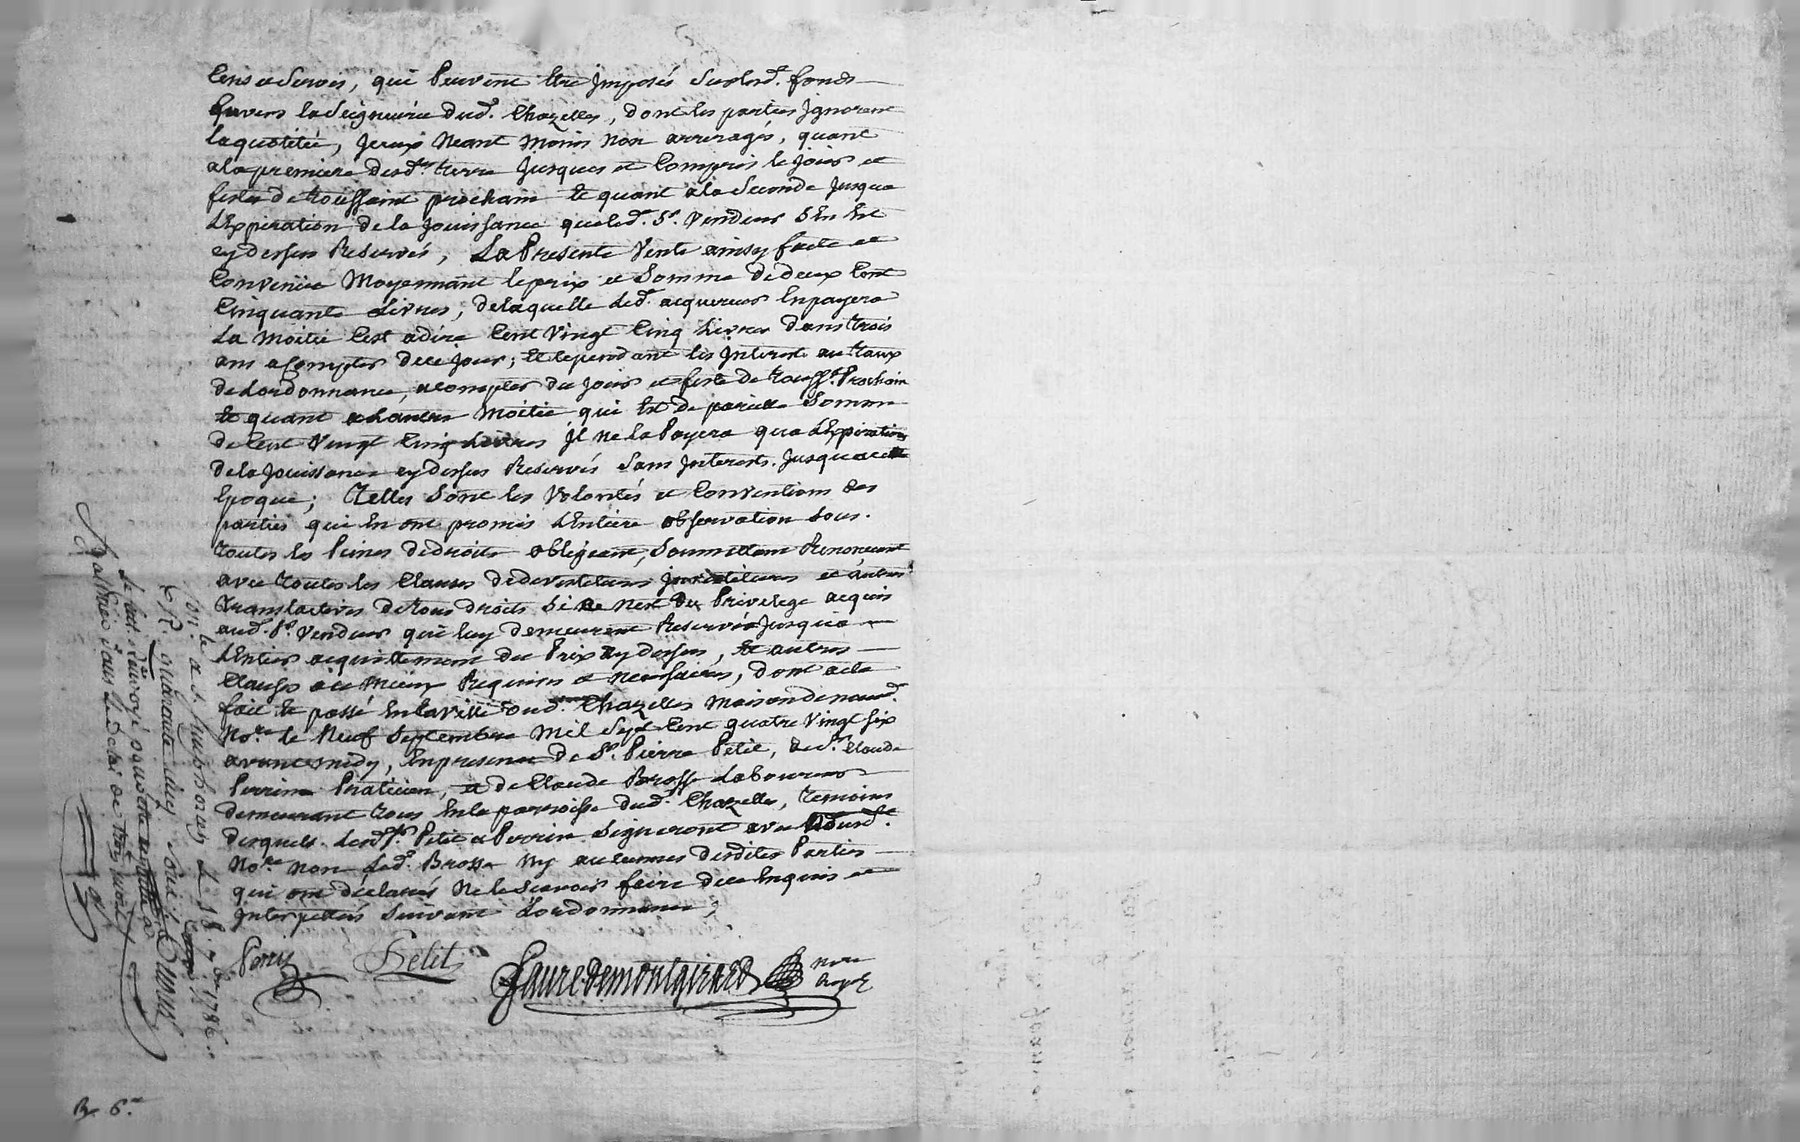 Cens et Servis, qui Peuvent Etre Jmposés Surlesd. fonds
Envers la Seigneurie dud. Chazelles, dont les parties Jgnorent
la quotitée, Jceux Neant Moins Non arreragés, quant
a la premiere desd. terre Jusques et Compris le Jour et
feste de toussaint prochain Et quant a la Seconde Jusqua
LExpiration de la Jouissance queled. Sr. Vendeur SEn Est
cydessus Reservés, La Presente Vente ainsy faite et
Convenue Moyennant leprix et Somme de deux Cent
Cinquante Livres, delaquelle Led. acquereur Enpayera
La Moitié Cest adire Cent Vingt Cinq Livres dans trois
ans aCompter dece jour; Et cependant les Jnterest au taux
de Lordonnance, acompter du Jour et feste de touss.t Prochain
Et quant a Lautre Moitié qui Est de pareille Somme
de Cent Vingt Cinq Livres Jl Ne la Payera qua LExpiration
de la Jouissance cydessus Reservés Sans Jnterests Jusquacette
Epoque; Telles Sont les Volontés et Conventions des
parties qui En ont promis LEntiere observation Sous
toutes les Peines dedroits obligeant, Soumettant Renonceant
avec toutes les Clauses dedevestitures Jnvestitures et autres
translatives detous droits Si Ce Nest du Privilege acquis
aud. Sr. Vendeur qui luy demeurent Reservés Jusqua
LEntier acquittement du Prix cydessus, Et autres
Clauses a ce Mieux Requises et necessaires, dont acte
fait Et passé Enlaville dud. Chazelles Maison de nousd.
No.re le Neuf Septembre Mil Sept Cent quatre Vingt Six
avant midy, Enpresence de Sr. Pierre Petit, de Sr. Claude
Perrin Praticien, et de Claude Brosse Laboureur
demeurant tous Enla parroisse dud. Chazelles, temoins
desquels Lesd. Srs. Petit et Perrin Signeront avec Nousd.
No.re non Led. Brosse Ny aucunes desdites Parties
qui ont declarés Ne le Scavoir faire dece Enquis et
Jnterpellés Suivant Lordonnance,
Perrin Petit Faure demontgirard nore
Royal
Con.le a St. Simphorien le 18. 7bre 1786.
R. quarante
B. 6.